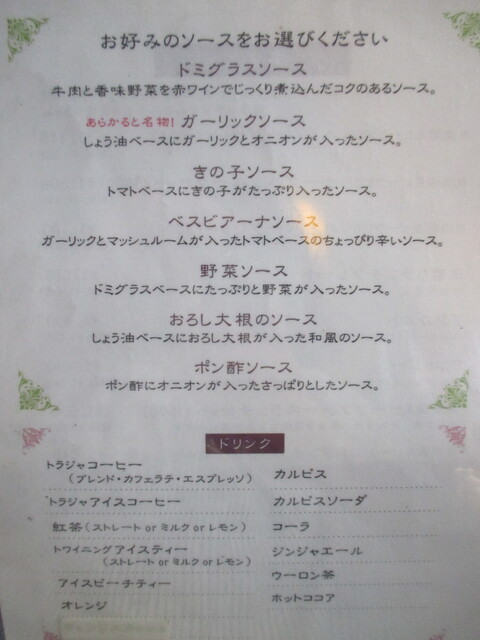 お好みのソースをお選びください
ドミグラスソース
牛肉と香味野菜を赤ワインでじっくり煮込んだコクのあるソース。
あらかると名物! ガーリックソース
しょう油ベースにガーリックとオニオンが入ったソース。
きの子ソース
トマトベースにきの子がたっぷり入ったソース。
ベスビアーナソース
ガーリックとマッシュルームが入ったトマトベースのちょっぴり辛いソース。
野菜ソース
ドミグラスベースにたっぷりと野菜が入ったソース。
おろし大根のソース
しょう油ベースにおろし大根が入った和風のソース。
ポン酢ソース
ポン酢にオニオンが入ったさっぱりとしたソース。
ドリンク
トラジャコーヒー
(ブレンド・カフェラテ・エスプレッソ)
トラジャアイスコーヒー
紅茶(ストレート or ミルク or レモン)
トワイニングアイスティー
(ストレート or ミルク or レモン)
アイスピーチティー
オレンジ
カルピス
カルピスソーダ
コーラ
ジンジャエール
ウーロン茶
ホットココア